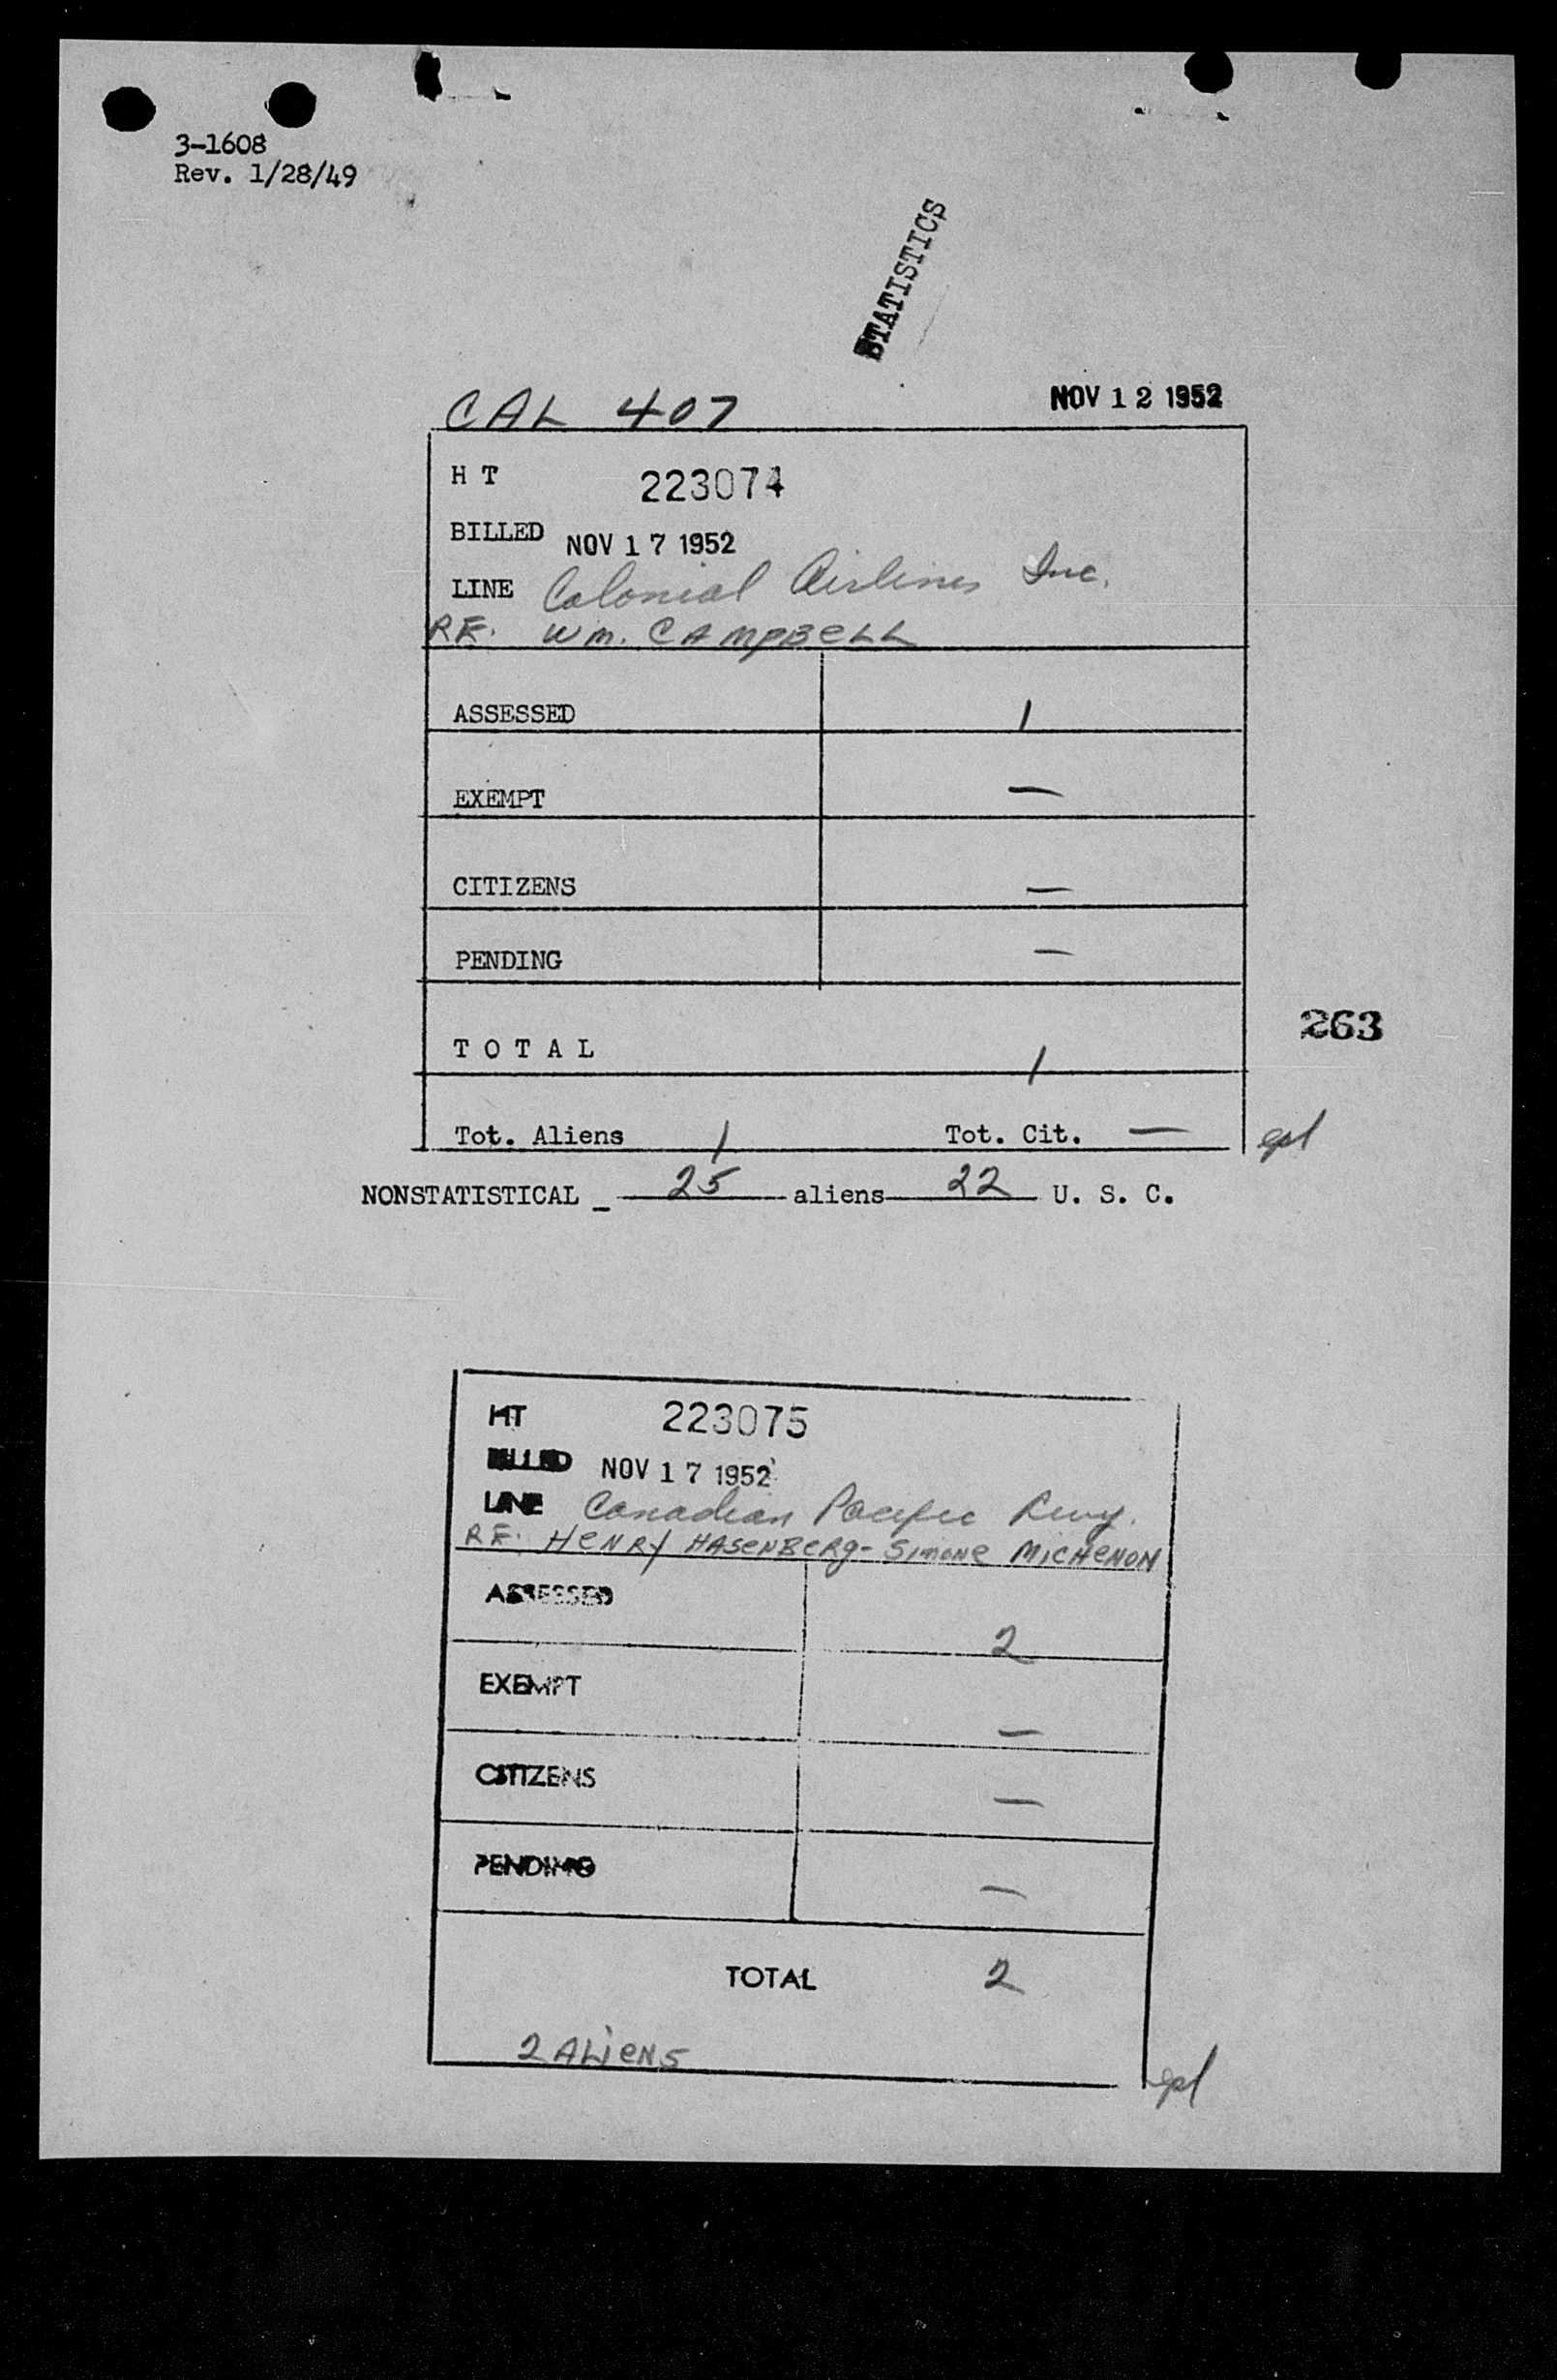 3-1608
Rev. 1/28/49
STATISTICS
CAL 407 NOV 12 1952
H T 223074
BILLED NOV 17 1952
LINE Colonial Airlines Inc.
RE. Wm. CAMPBELL
ASSESSED 1
EXEMPT —
CITIZENS —
PENDING —
263
T O T A L 1
Tot. Aliens 1 Tot. Cit. — epl
NONSTATISTICAL _ 25 aliens 22 U. S. C.
HT 223075
BILLED NOV 17 1952
LINE Canadian Pacific Rwy.
RE: HENRY HASENBERG - SIMONE MICHENON
ASSESSED 2
EXEMPT —
CITIZENS —
PENDING —
TOTAL 2
2 ALiENS
epl